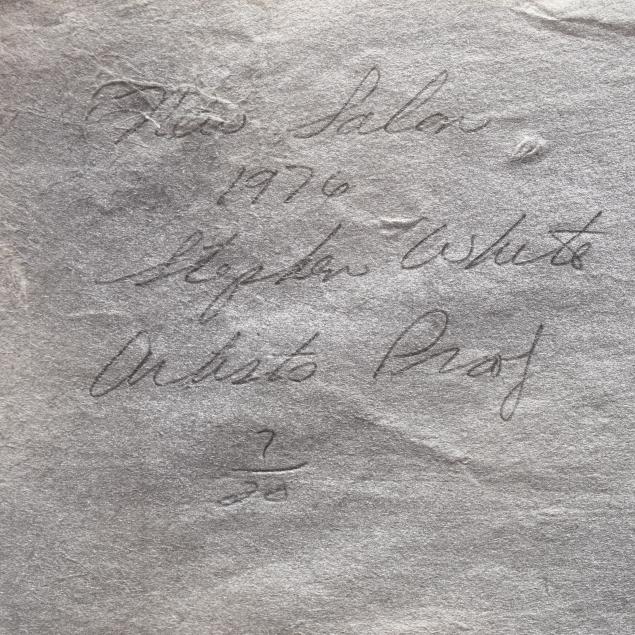 Salon
1976
Stephen White
Artists Proof
7
20